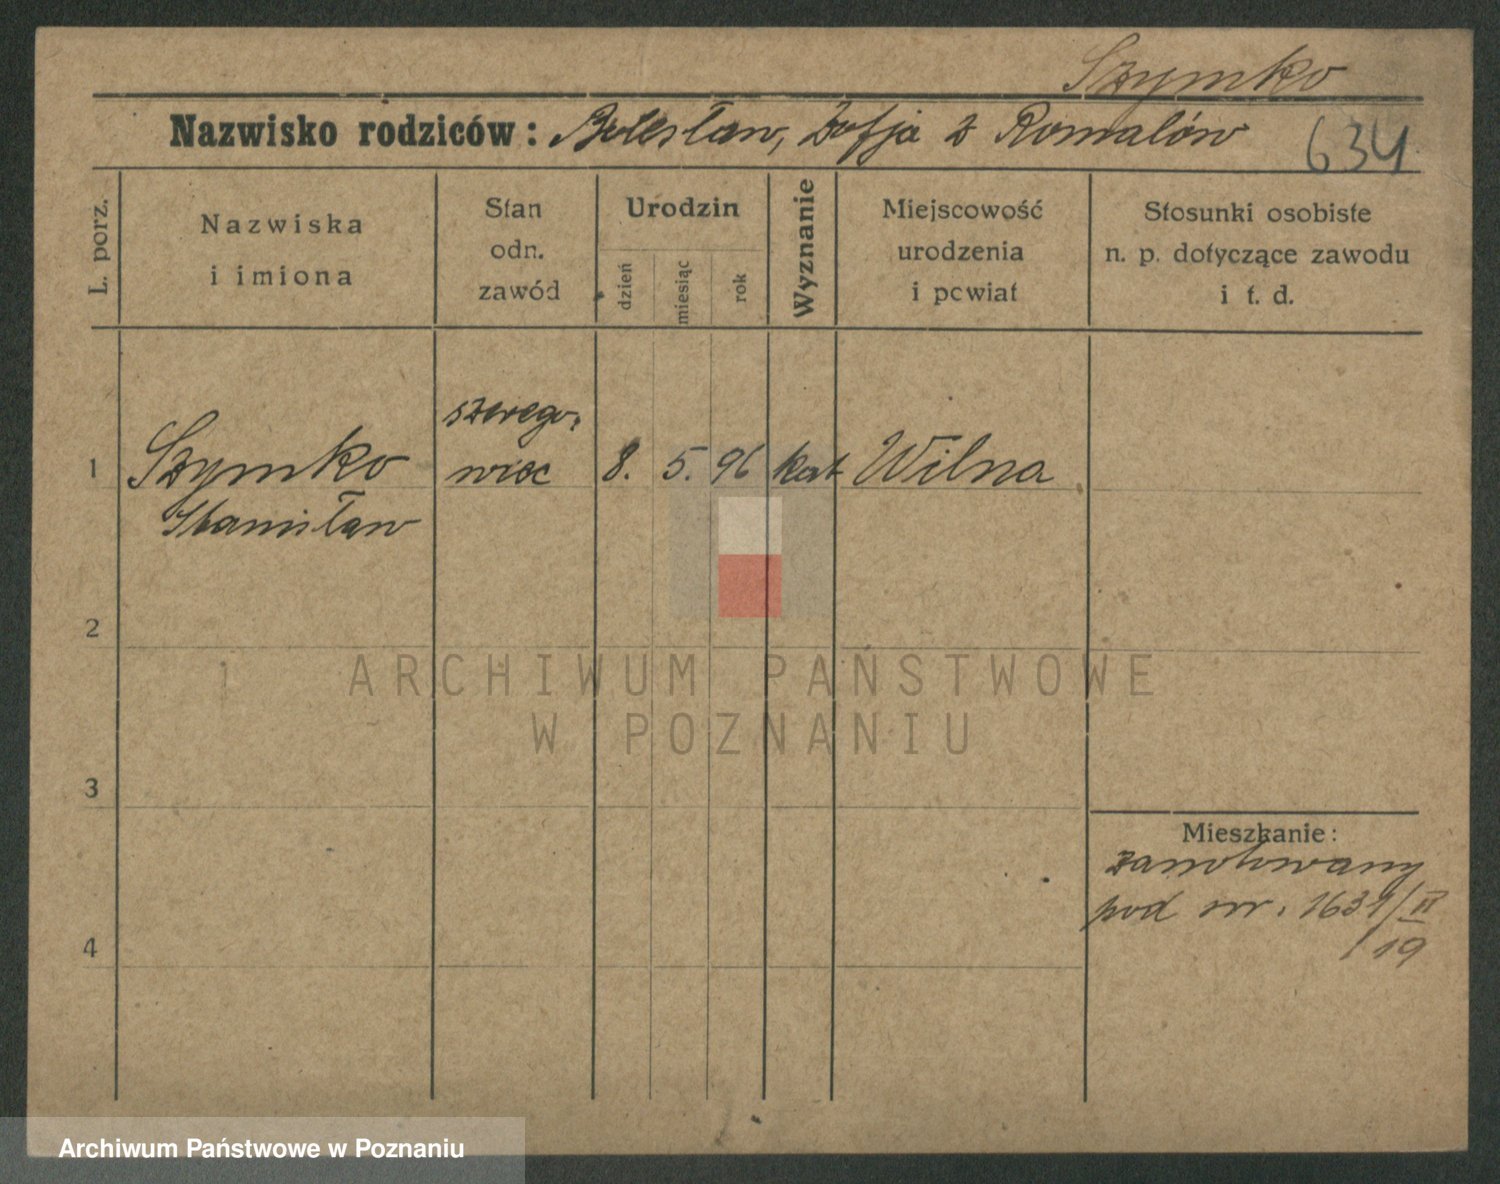 Szymko
Nazwisko rodziców: Bolesław, Zofja z Romalów 634
L. porz.
Nazwiska
i imiona
Stan
odn.
zawód
Urodzin
dzień
miesiąc
rok
Wyznanie
Miejscowość
urodzenia
i powiat
Stosunki osobiste
n. p. dotyczące zawodu
i t. d.
szerego-
1 Szymko wiec 8. 5. 96 kat Wilna
Stanisław
2
ARCHIWUM PAŃSTWOWE
W POZNANIU
3
Mieszkanie:
zanotowany
pod nr. 1631/II
19
4
Archiwum Państwowe w Poznaniu